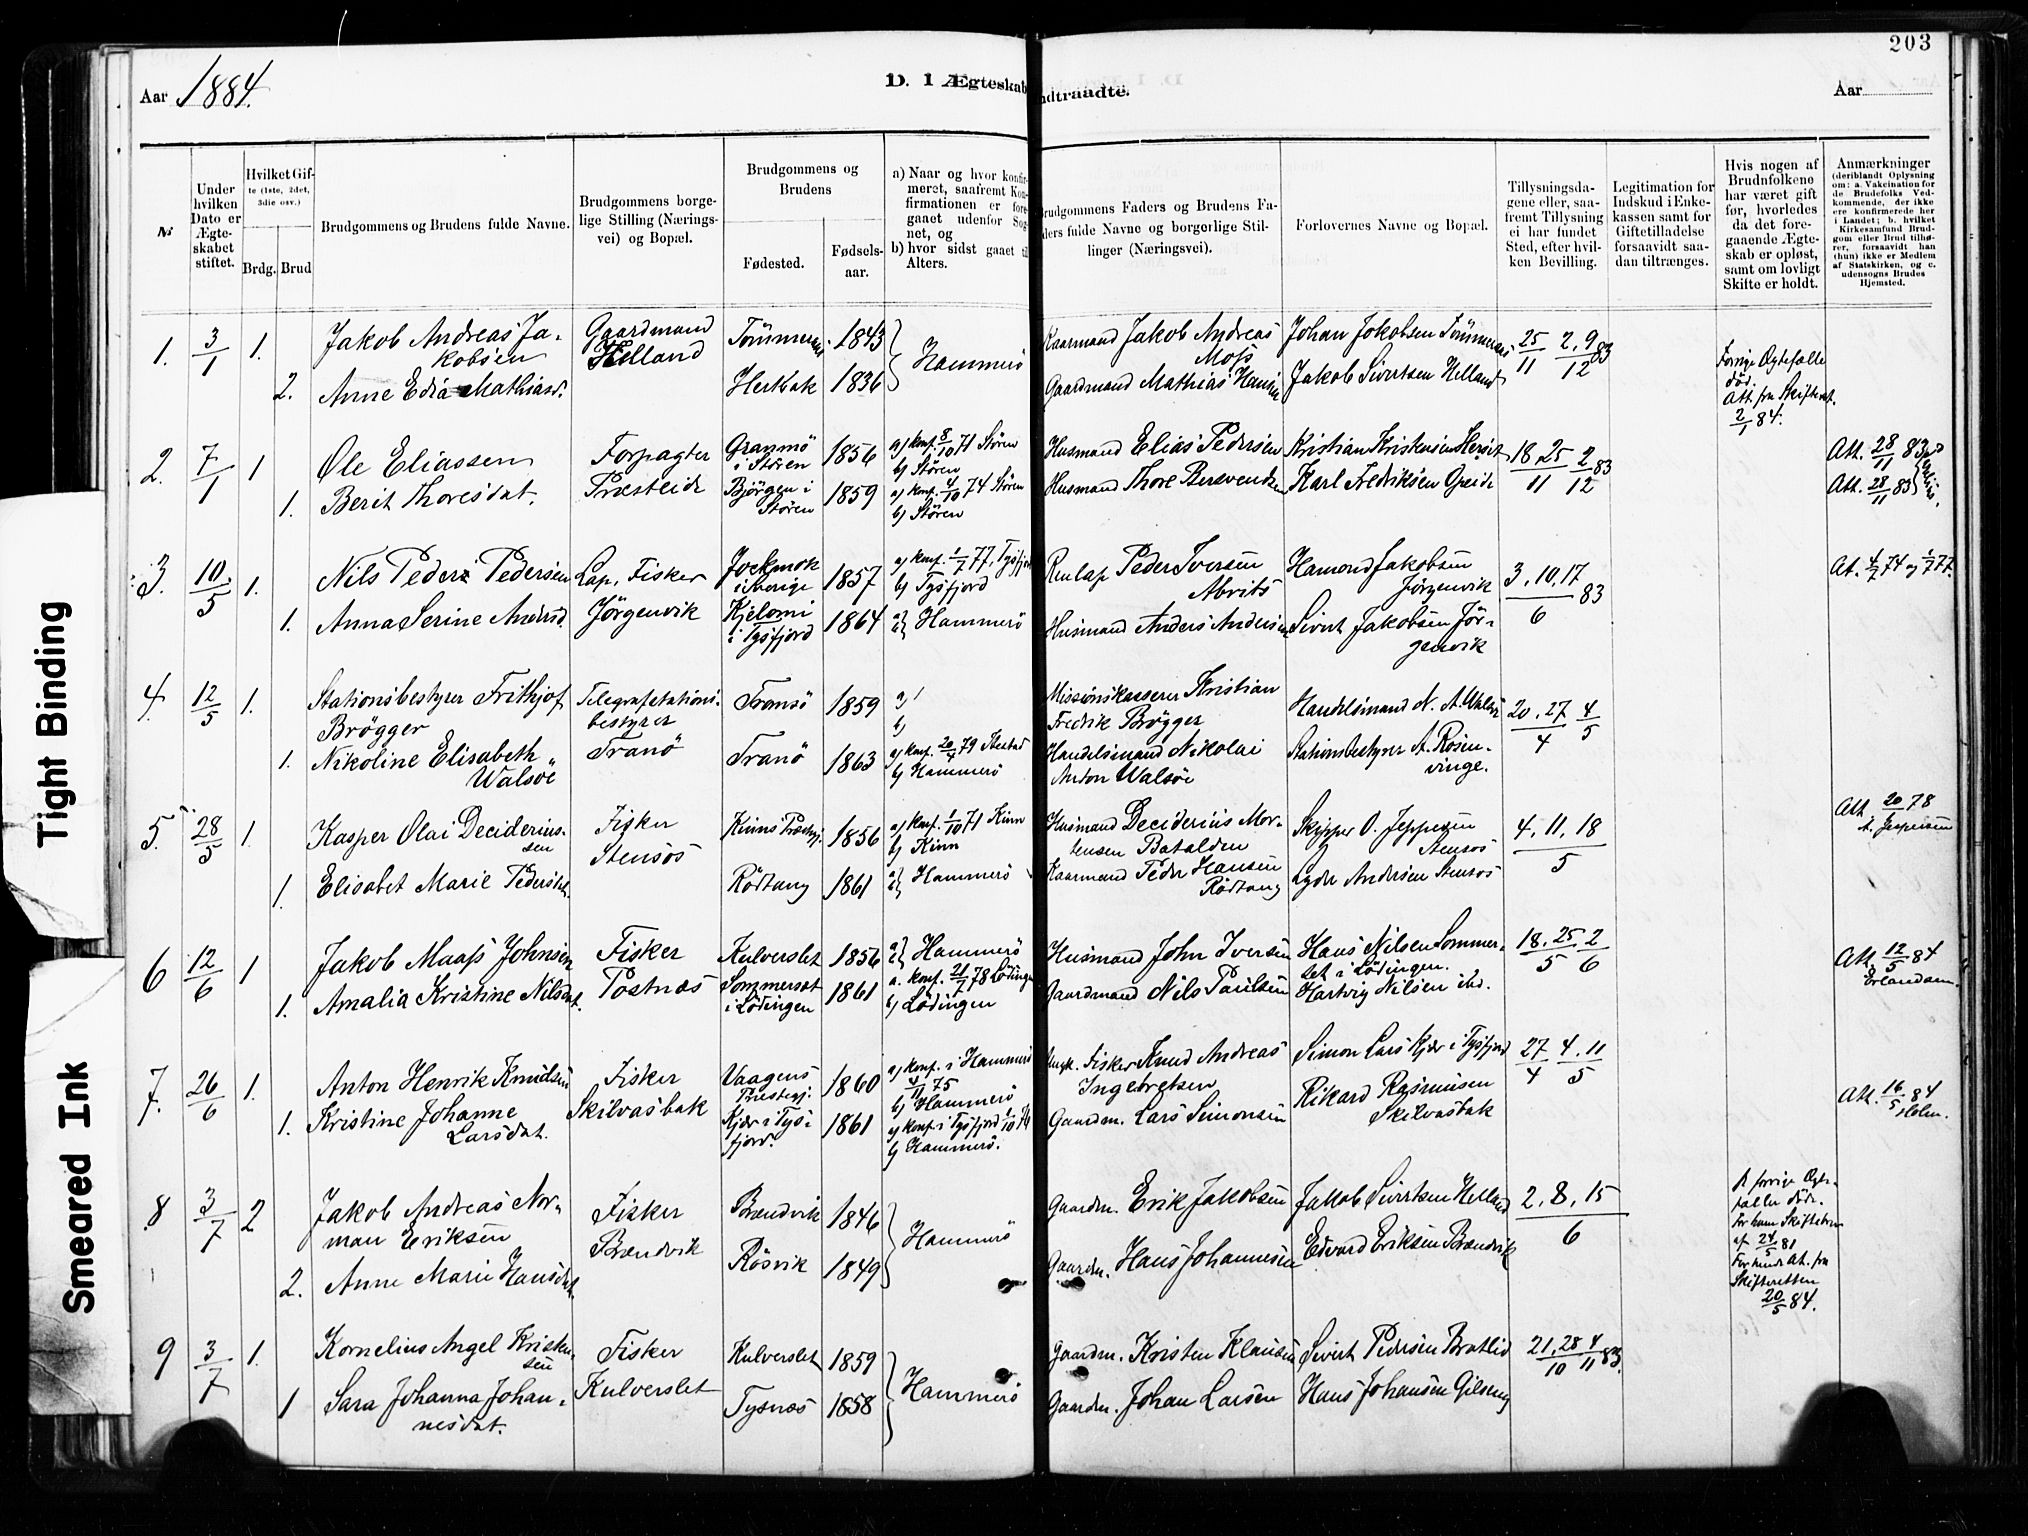 203
Aar 1884.
D. I Ægteskab
ndtraadte.
Aar
Tight Binding
Smeared Ink
No
Under hvilken Dato er Ægteskabet stiftet.
Hvilket Gifte (1ste, 2det, 3die osv.)
Brdg. Brud
Brudgommens og Brudens fulde Navne.
Brudgommens borgelige Stilling (Næringsvei) og Bopæl.
Brudgommens og Brudens
Fødested.
Fødselsaar.
a) Naar og hvor konfirmeret, saafremt Konfirmationen er foregaaet udenfor Sognet, og
b) hvor sidst gaaet til Alters.
Brudgommens Faders og Brudens Faders fulde Navne og borgerlige Stillinger (Næringsvei).
Forlovernes Navne og Bopæl.
Tillysningsdagene eller, saafremt Tillysning ei har fundet Sted, efter hvilken Bevilling.
Legitimation for Indskud i Enkekassen samt for Giftetilladelse forsaavidt saadan tiltrænges.
Hvis nogen af Brudnfolkene har været gift før, hvorledes da det foregaaende Ægteskab er opløst, samt om lovligt Skifte er holdt.
Anmærkninger (deriblandt Oplysning om: a. Vakcination for de Brudefolks Vedkommende, der ikke ere konfirmerede her i Landet; b. hvilket Kirkesamfund Brudgom eller Brud tilhører, forsaavidt han (hun) ikke er Medlem af Statskirken, og c. udensogns Brudes Hjemsted.
1. 3/1 1. Jakob Andreas Jakobsen Gaardmand Helland 1843 Hammerö Kaarmand Jakob Andreas Johan Jakobsen 25/11 2, 9/12 83
2. Anne Edia Mathiasd. Herbak 1836 Gaardmand Mathias Hansen Jakob Sivertsen Helland
Forrige Ægtefælle død. Att. fra Skifteret. 2/1 84.
2. 7/1 1 Ole Eliassen Forpagter Granmö i Stören 1856 a) konf. 8/10 71 Stören b) Stören Husmand Elias Pedersen 18, 25/11 2/12 83 Att. 28/11 83
1. Berit Thoresdat. Præsteide Björgen i Stören 1859 a) konf. 4/10 74 Stören b) Stören Husmand Thore Karl Fredriksen Att. 28/11 83
3. 10/5 1. Nils Peder Pedersen Lap, Fisker Jockmok i Sverige 1857 a) konf. 1/7 77, Tysfjord b) Tysfjord Renlap Peder Iversen Hamond Jakobsen Jörgenvik 3, 10, 17/6 83 At. 4/7 74 og 1/7 77.
1. Anna Serine Andersd. Jörgenvik Kjelomi i Tysfjord 1864 a) b) Hammerö Husmand Anders Andersen Sivert Jakobsen Jörgenvik
4. 12/5 1. Stationsbestyrer Frithjof Brögger Telegrafstationsbestyrer Tranö Tromsö 1859 a) b) Missionskasserer Kristian Fredrik Brögger Handelsmand N. A. Walsöe 20, 27/4 4/5
1. Nikoline Elisabeth Walsöe Tranö 1863 a) konf. 20/4 79 b) Hammerö Handelsmand Nikolai Anton Walsöe Stationsbestyrer A. Rosenvinge.
5. 28/5 1. Kasper Olai Decideriussen Fisker Stensos Kinns Præstgj. 1856 a) konf. 1/10 71 Kinn b) Kinn Husmand Deciderius Mortensen Batalden Skipper O. Jeppesen Stensos 4, 11, 18/5 Att. 20/4 78 Jespersen
1. Elisabet Marie Pedersdat. Rödtang 1861 a) b) Hammerö Kaarmand Peder Hansen Rödtang Lyder Andersen Stensos
6 12/6 1 Jakob Maass Johnsen Fisker Postnæs Kulverslet 1856 a) b) Hammerö Husmand John Iversen Hans Nilsen Sommerset i Lödingen. 18, 25/5 2/6 Att. 12/5 84 Erlandsen.
1. Amalia Kristine Nilsdat. Sommerset i Lödingen 1861 a. konf. 21/7 78 Lödingen b) Lödingen Gaardmand Nils Paulsen Hartvig Nilsen ibd.
7. 26/6 1. Anton Henrik Knudsen Fisker Skilvasbak Vaagens Præstegj. 1860 a) konf. i Hammerö 4/11 75 b) Hammerö Fisker Knud Andreas Ingebretsen Simon Lars Kjær i Tysfjord 27/4 4, 11/5 Att. 16/5 84 Holm.
1. Kristine Johanne Larsdat. Kjær i Tysfjord. 1861 a) konf. i Tysfjord b) Hammerö. Gaardm. Lars Simonsen Rikard Rasmusen Skilvasbak
8 3/7 2 Jakob Andreas Norman Eriksen Fisker Brændvik Brændvik 1846 Hammerö Gaardm. Erik Jakobsen Jakob Sivertsen Helland 2, 8, 15/6
2. Anne Marie Hansdat. Rösvik 1849 Gaardm. Hans Johannesen Edvard Eriksen Brændvik
forrige Ægtefæller döde. For ham Skiftebrev af 24/5 81 For hende At. fra Skifteretten 20/5 84.
9 3/7 1. Kornelius Angel Kristensen Fisker Kulverslet Kulverslet 1859 Hammerö Gaardm. Kristen Klausen Sivert Pedersen Bratlid 21, 28/10 4/11 83
1 Sara Johanna Johannesdat. Tysnæs 1858 Gaardm. Johan Larsen Hans Johansen